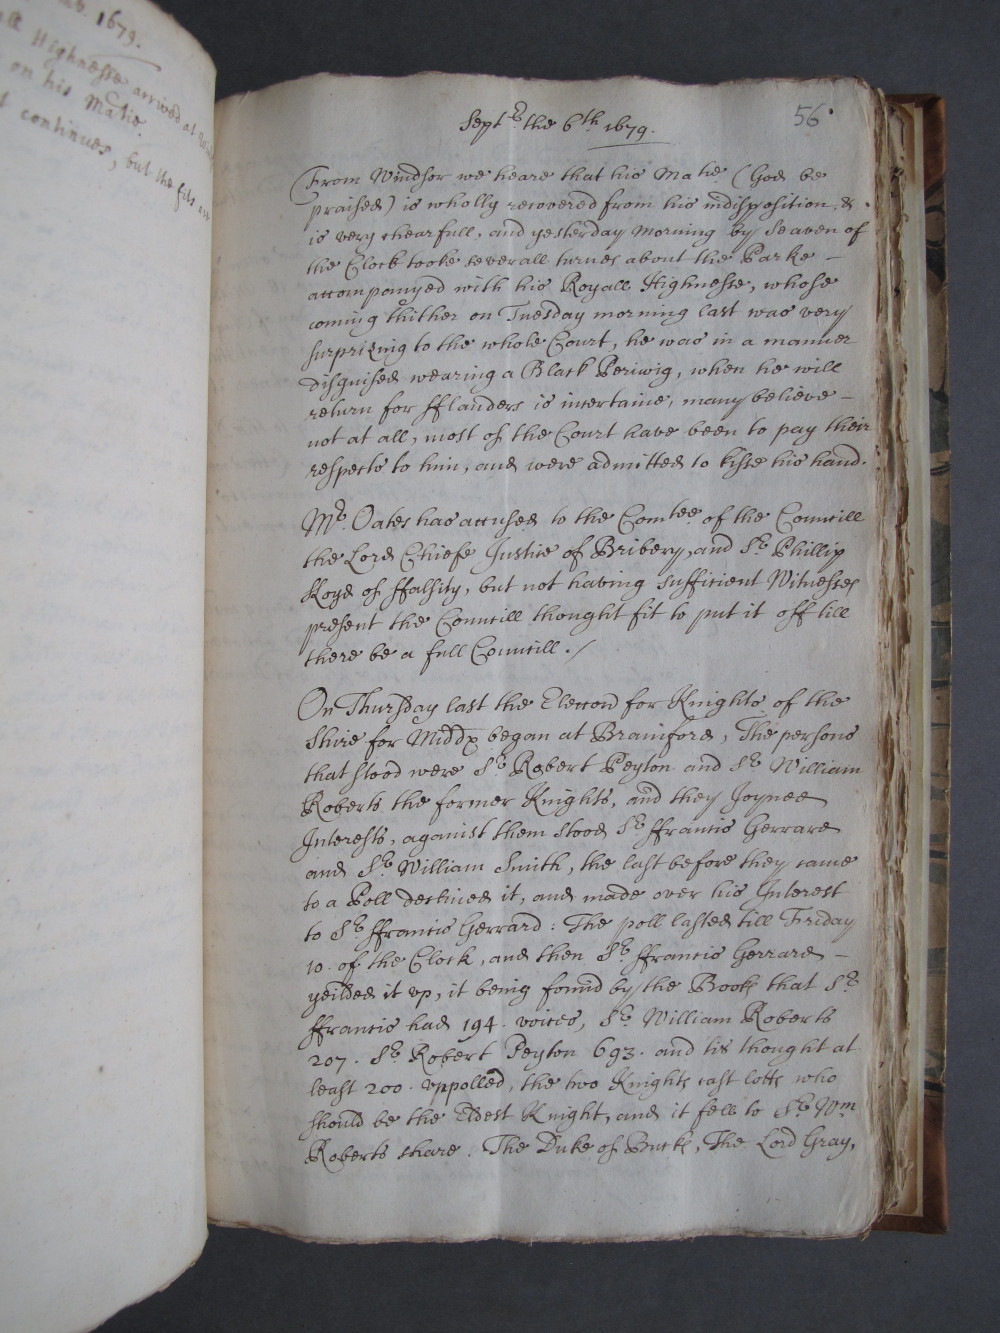 mb. 1679.
Highnesse arrived at
on his Matie.
continues, but the fits are
56
Septr. the 6th 1679.
From Windsor we heare that his Matie (God be
praised) is wholly recovered from his indisposition, &
is very chearfull, and yesterday morning by Seaven of
the Clock tooke severall turnes about the Parke –
accompanyed with his Royall Highnesse, whose
coming thither on Tuesday morning last was very
surprizing to the whole Court, he was in a manner
disguised wearing a Black Periwig, when he will
return for Fflanders is incertaine, many believe –
not at all, most of the Court have been to pay their
respects to him, and were admitted to kisse his hand.
Mr. Oates has accused to the Comtee of the Councill
the Lord Chiefe Justice of Bribery, and Sr. Phillip
Loyd of ffalsity, but not having sufficient Witnesses
present the Councill thought fit to put it off till
there be a full Councill. /
On Thursday last the Eleccon for Knights of the
Shire for Middx began at Brainford, The persons
that stood were Sr. Robert Peyton and Sr. William
Roberts the former Knights, and they Joyned
Interests, against them stood Sr. ffrancis Gerrard
and Sr. William Smith, the last before they came
to a Poll declined it, and made over his Interest
to Sr. ffrancis Gerrard: The poll lasted till Friday
10. of the Clock, and then Sr. ffrancis Gerrard –
yeilded it up, it being found by the Book that Sr.
ffrancis had 194. voices, Sr. William Roberts
207. Sr. Robert Peyton 693. and tis thought at
least 200. vppolled, the two Knights cast lotts who
should be the Eldest Knight, and it fell to Sr. Wm
Roberts share. The Duke of Buck, The Lord Gray,